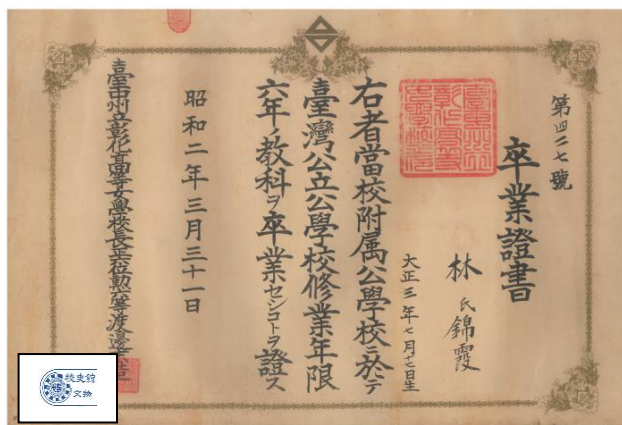 第四二七號
卒業證書
林氏錦霞
大正三年七月七日生
右者當校附属公學校ニ於テ
臺灣公立公學校修業年限
六年ノ教科ヲ卒業セシコトヲ證ス
昭和二年三月三十一日
臺中州立彰化高等女學校長正位勲等渡邊
校史館
文物